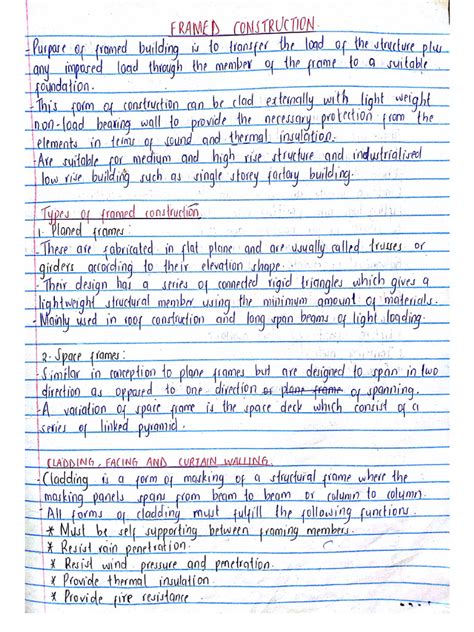 FRAMED CONSTRUCTION.
- Purpose of framed building is to transfer the load of the structure plus
any imposed load through the member of the frame to a suitable
foundation.
- This form of construction can be clad externally with light weight
non-load bearing wall to provide the necessary protection from the
elements in terms of sound and thermal insulation.
- Are suitable for medium and high rise structure and industrialised
low rise building such as single storey factory building.
Types of framed construction.
1. Planed frames:
- These are fabricated in flat plane and are usually called trusses or
girders according to their elevation shape.
- Their design has a series of connected rigid triangles which gives a
lightweight structural member using the minimum amount of materials.
- Mainly used in roof construction and long span beams of light loading.
2. Space frames:
- Similar in conception to plane frames but are designed to span in two
direction as opposed to one direction or plane frame of spanning.
- A variation of space frame is the space deck which consist of a
series of linked pyramid.
CLADDING, FACING AND CURTAIN WALLING.
- Cladding is a form of masking of a structural frame where the
masking panels spans from beam to beam or column to column.
- All forms of cladding must fulfill the following functions.
* Must be self supporting between framing members.
* Resist rain penetration.
* Resist wind pressure and penetration.
* Provide thermal insulation.
* Provide fire resistance.